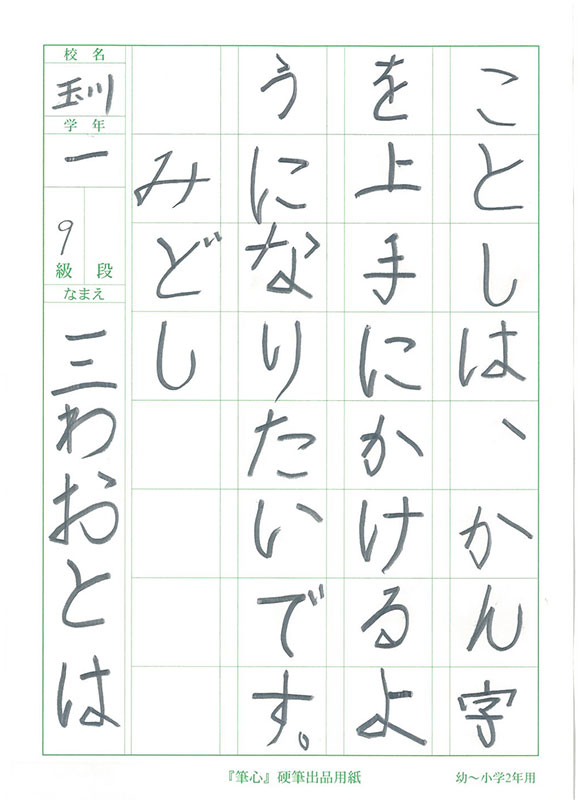 ことしは、かん字
を上手にかけるよ
うになりたいです。
みどし
校名
玉川
学年
一
9
級 段
なまえ
三わおとは
『筆心』硬筆出品用紙
幼～小学2年用